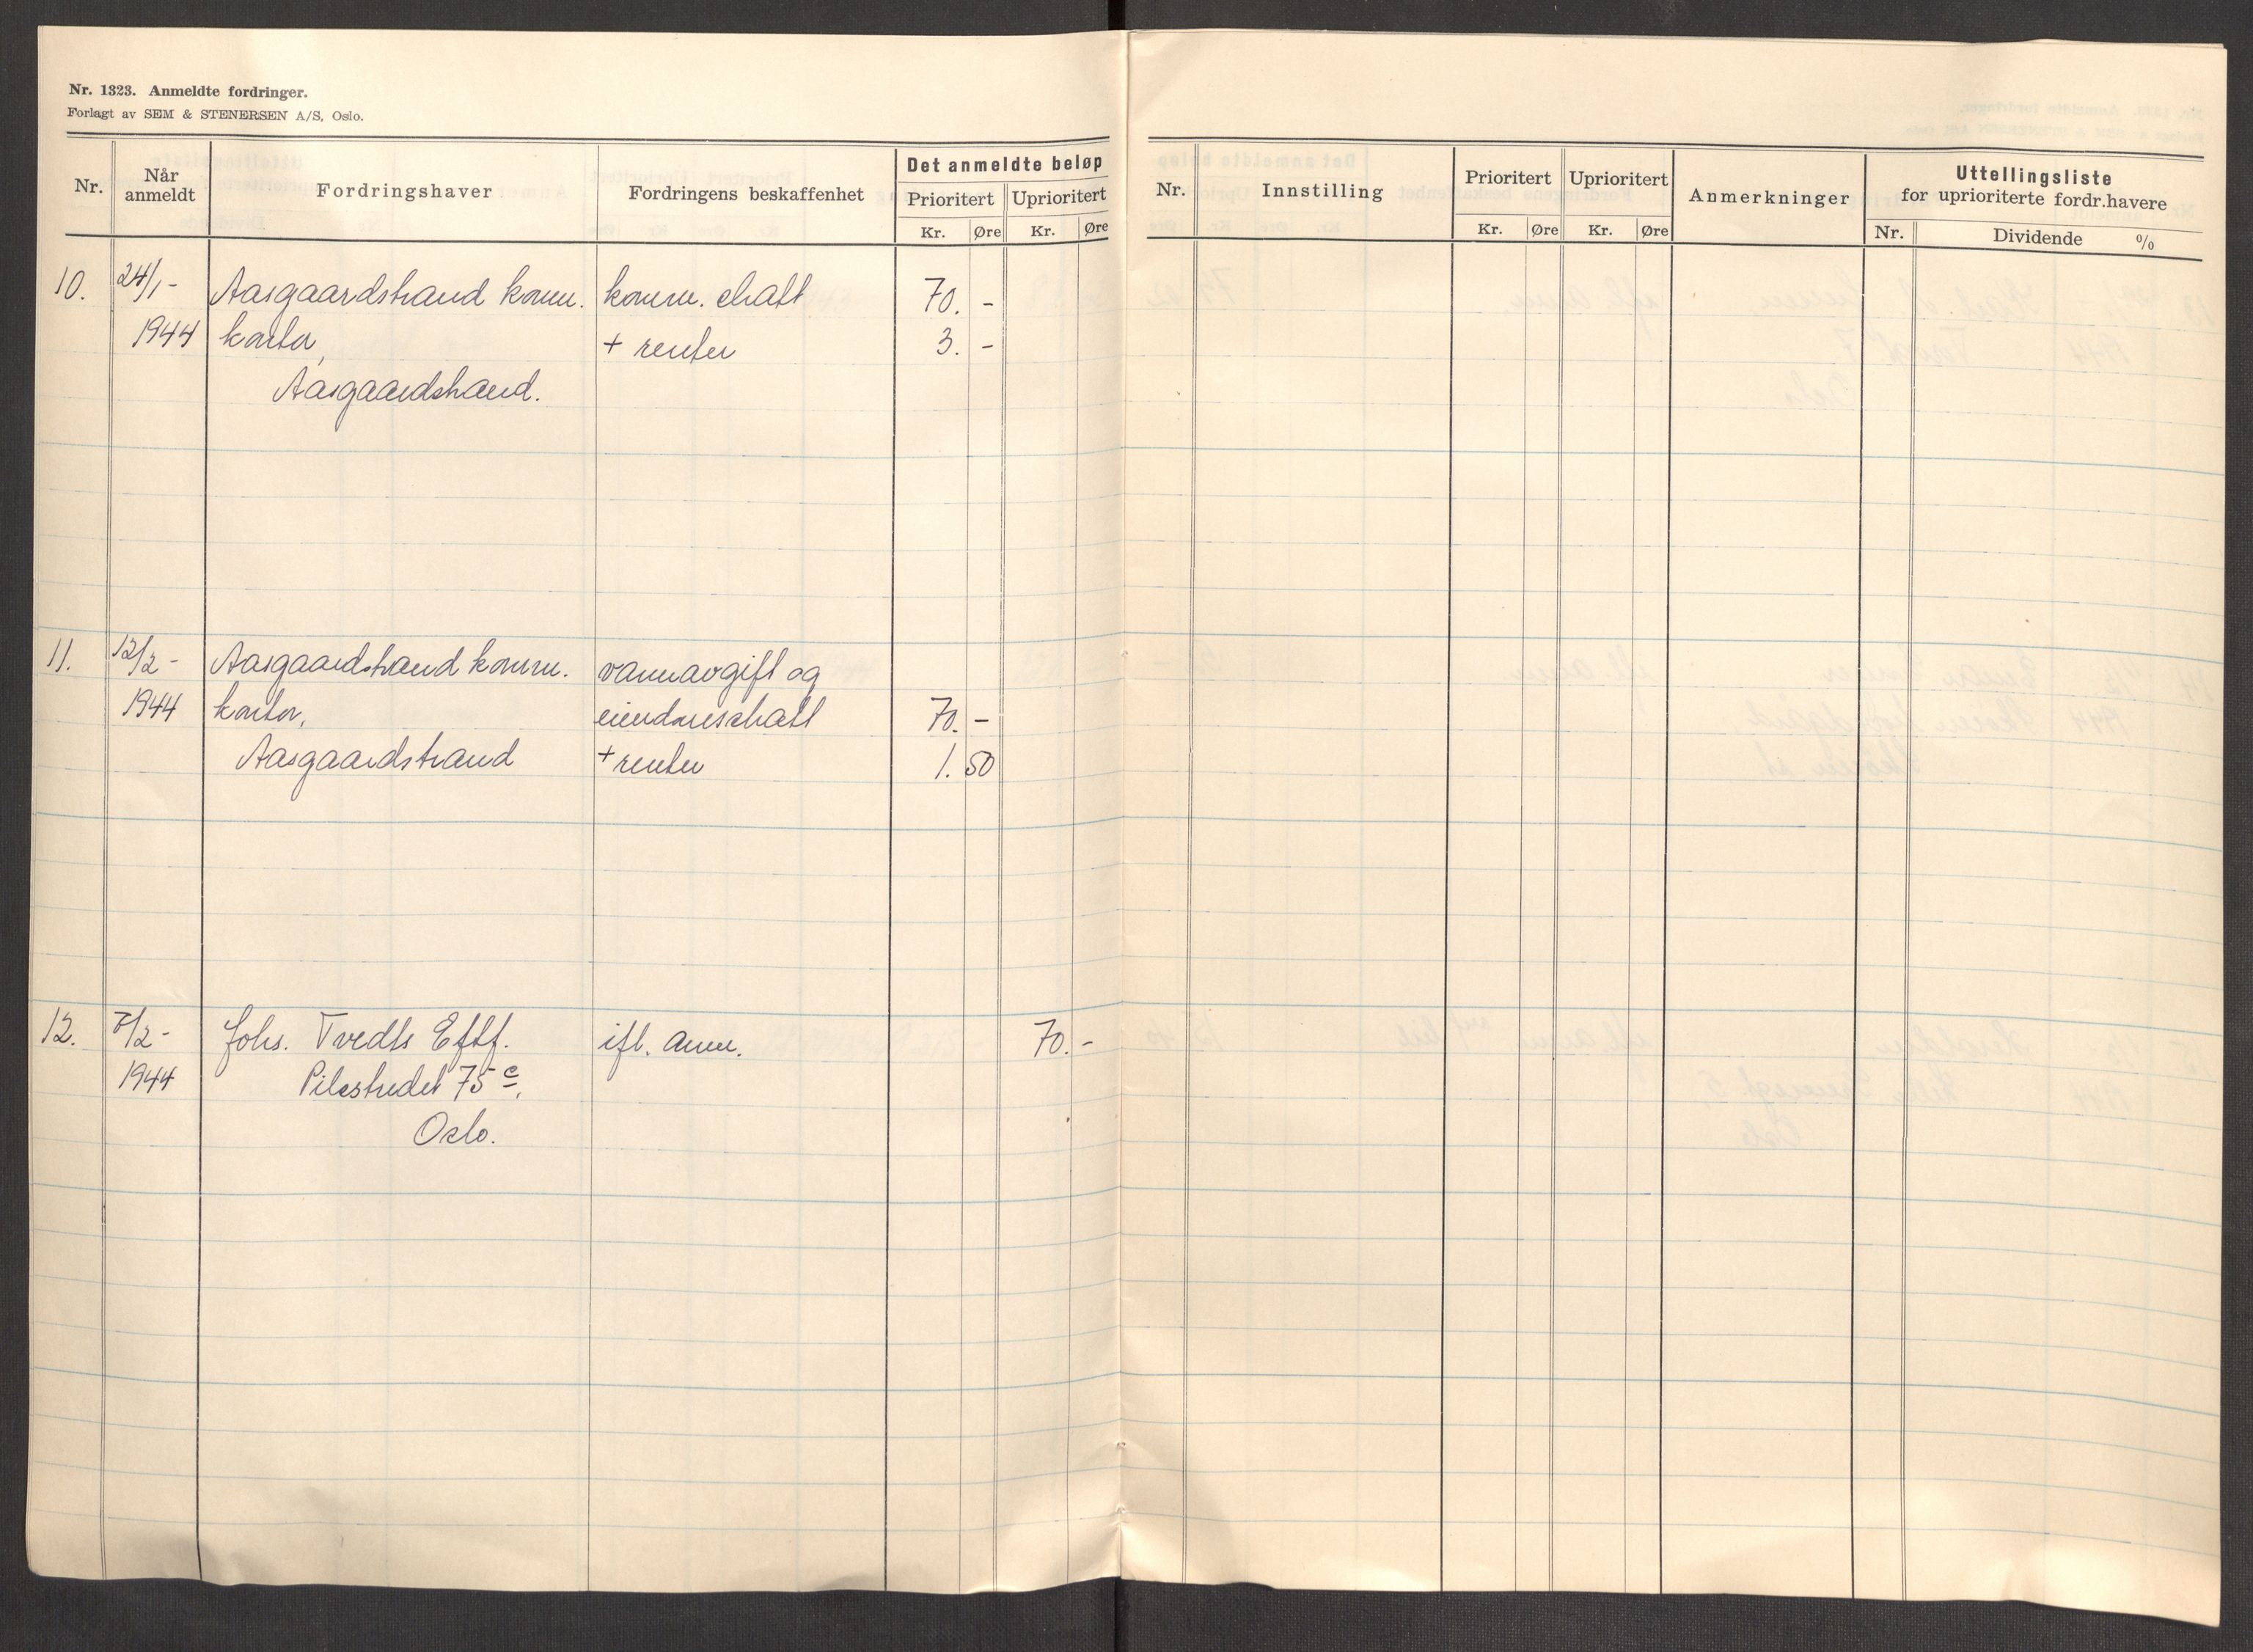 Nr. 1323. Anmeldte fordringer.
Forlagt av SEM & STENERSEN A/S, Oslo.
Nr. Når anmeldt Fordringshaver Fordringens beskaffenhet Det anmeldte beløp
Prioritert Uprioritert
Kr. Øre Kr. Øre
10. 24/1- Aasgaardstrand komm. komm. skatt 70. -
1944 kontor, + renter 3. -
Aasgaardstrand.
11. 12/2- Aasgaardstrand komm. vannavgift og
1944 kontor, eiendomsskatt 70. -
Aasgaardstrand + renter 1. 50
12. 7/2- Johs. Tvedts Eftf. ifl. anm. 70. -
1944 Pilestredet 75 c,
Oslo.
Nr. Innstilling Prioritert Uprioritert Anmerkninger Uttellingsliste
for uprioriterte fordr.havere
Kr. Øre Kr. Øre Nr. Dividende %